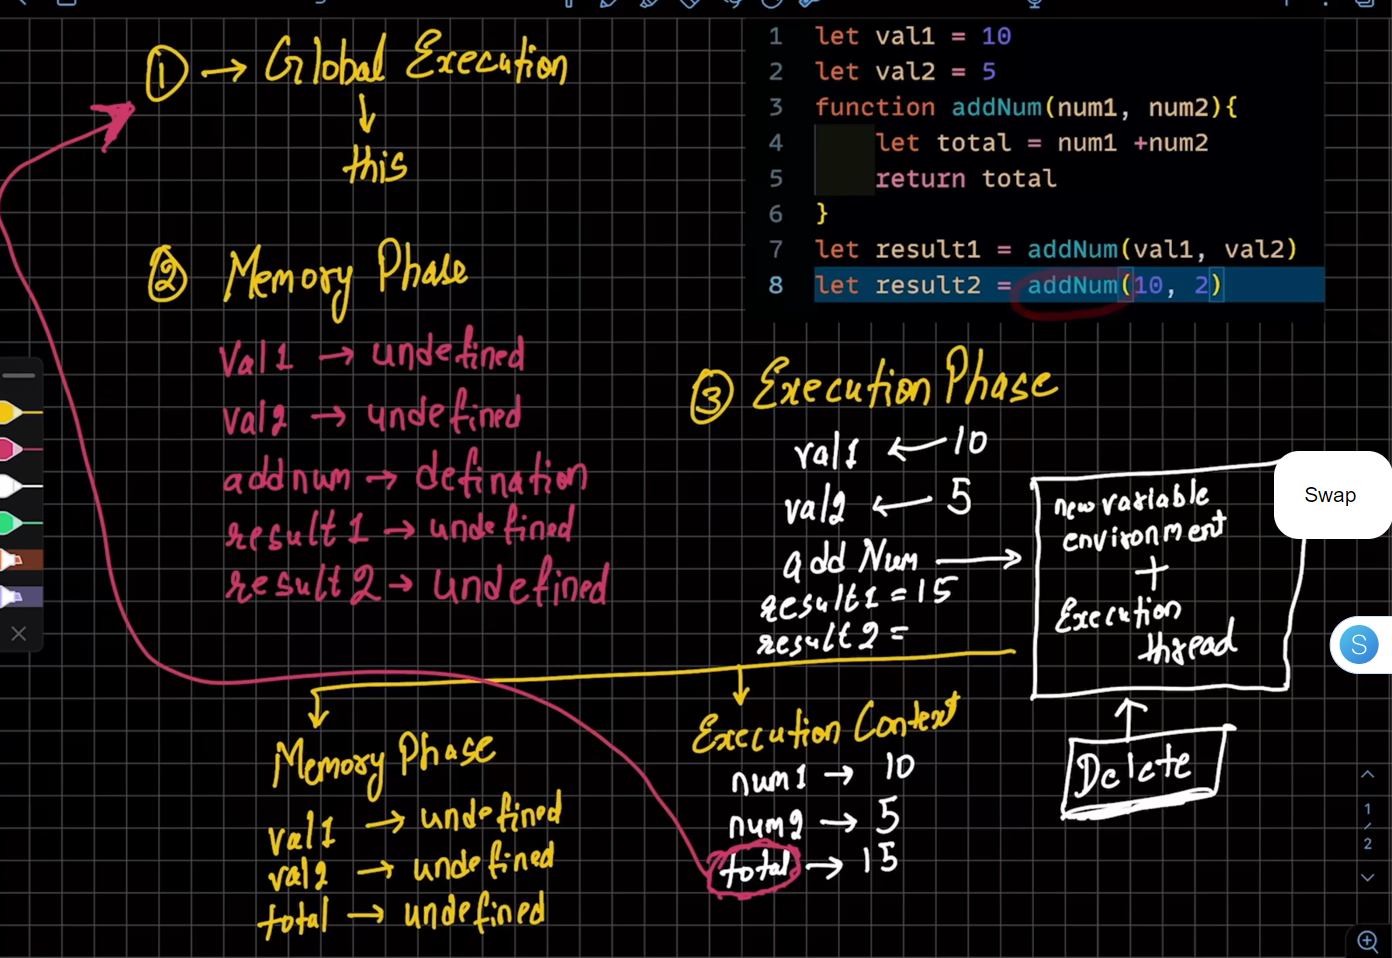 ① → Global Execution
↓
this
② Memory Phase
Val1 → undefined
val2 → undefined
addnum → defination
result1 → undefined
result2 → undefined
1 let val1 = 10
2 let val2 = 5
3 function addNum(num1, num2){
4 let total = num1 +num2
5 return total
6 }
7 let result1 = addNum(val1, val2)
8 let result2 = addNum(10, 2)
③ Execution Phase
val1 ← 10
val2 ← 5
add Num →
result1 = 15
result2 =
new variable
environment
+
Execution
thread
Delete
Memory Phase
val1 → undefined
val2 → undefined
total → undefined
Execution Context
num1 → 10
num2 → 5
total → 15
Swap
S
1
/
2